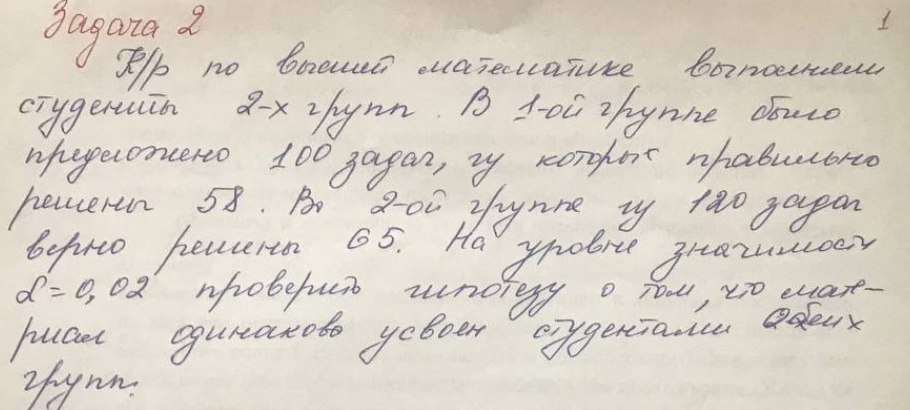 Задача 2
1
К/р по высшей математике выполняли
студенты 2-х групп. В 1-ой группе было
предложено 100 задач, из которых правильно
решены 58. Во 2-ой группе из 120 задач
верно решены 65. На уровне значимости
α=0,02 проверить гипотезу о том, что мате-
риал одинаково усвоен студентами обеих
групп.